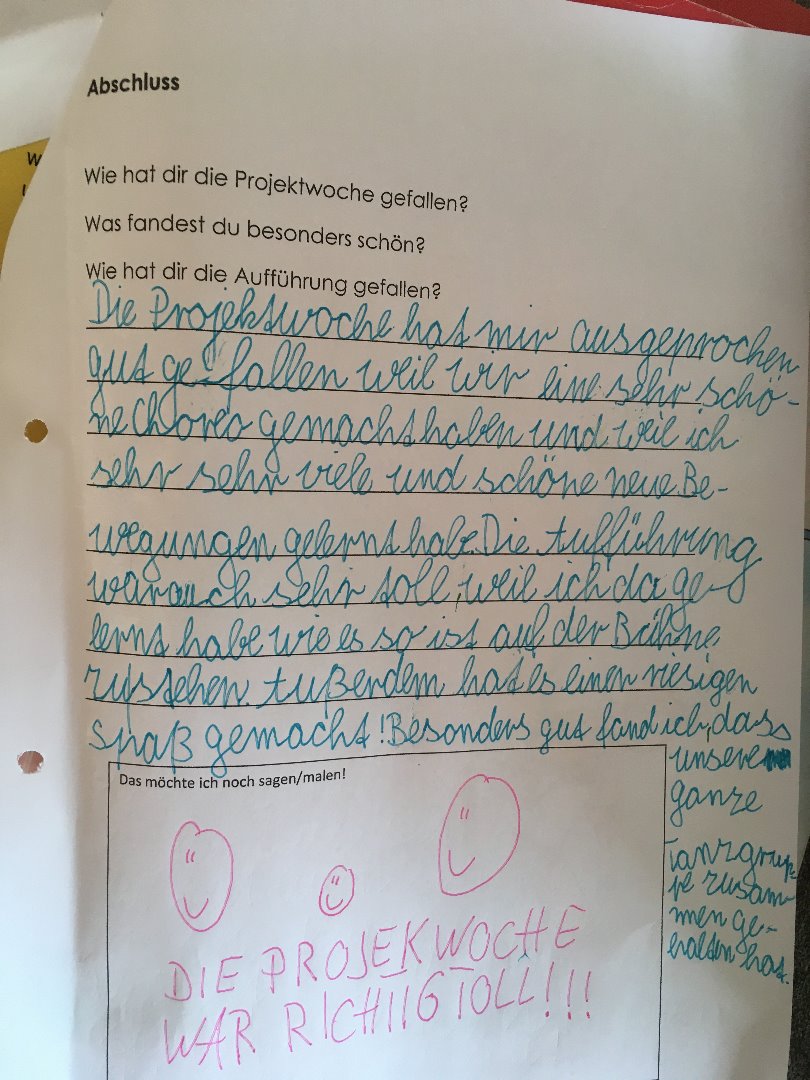 W
Abschluss
Wie hat dir die Projektwoche gefallen?
Was fandest du besonders schön?
Wie hat dir die Aufführung gefallen?
Die Projektwoche hat mir ausgeprochen
gut ge-fallen weil wir eine sehr schö-
ne Choreo gemacht haben und weil ich
sehr sehr viele und schöne neue Be-
wegungen gelernt habe. Die Aufführung
war auch sehr toll, weil ich da ge-
lernt habe wie es so ist auf der Bühne
zu stehen. Außerdem hat es einen riesigen
spaß gemacht! Besonders gut fand ich, dass
unsere
ganze
Tanzgrup-
pe zusam-
men ge-
halten hat.
Das möchte ich noch sagen/malen!
DIE PROJEKWOCHE
WAR RICHIIG TOLL!!!